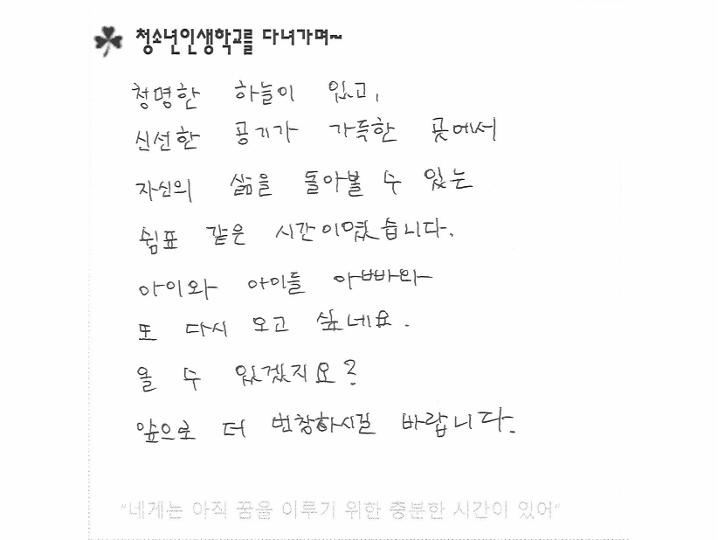 청소년인생학교를 다녀가며~
청명한 하늘이 있고,
신선한 공기가 가득한 곳에서
자신의 삶을 돌아볼 수 있는
쉼표 같은 시간이였습니다.
아이와 아이들 아빠와
또 다시 오고 싶네요.
올 수 있겠지요?
앞으로 더 번창하시길 바랍니다.
"네게는 아직 꿈을 이루기 위한 충분한 시간이 있어"